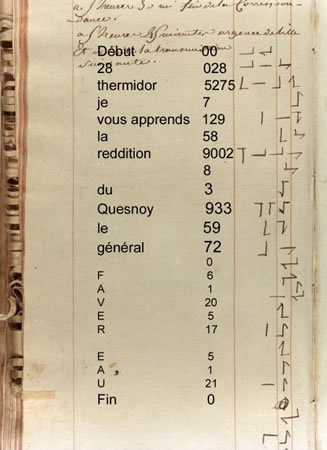 heures 30 fin de la Correspon-
dance.
heures minutes urgence de Lille
la transmission
suivante.
Début 00
28 028
thermidor 5275
je 7
vous apprends 129
la 58
reddition 9002
8
du 3
Quesnoy 933
le 59
général 72
0
F 6
A 1
V 20
E 5
R 17
E 5
A 1
U 21
Fin 0